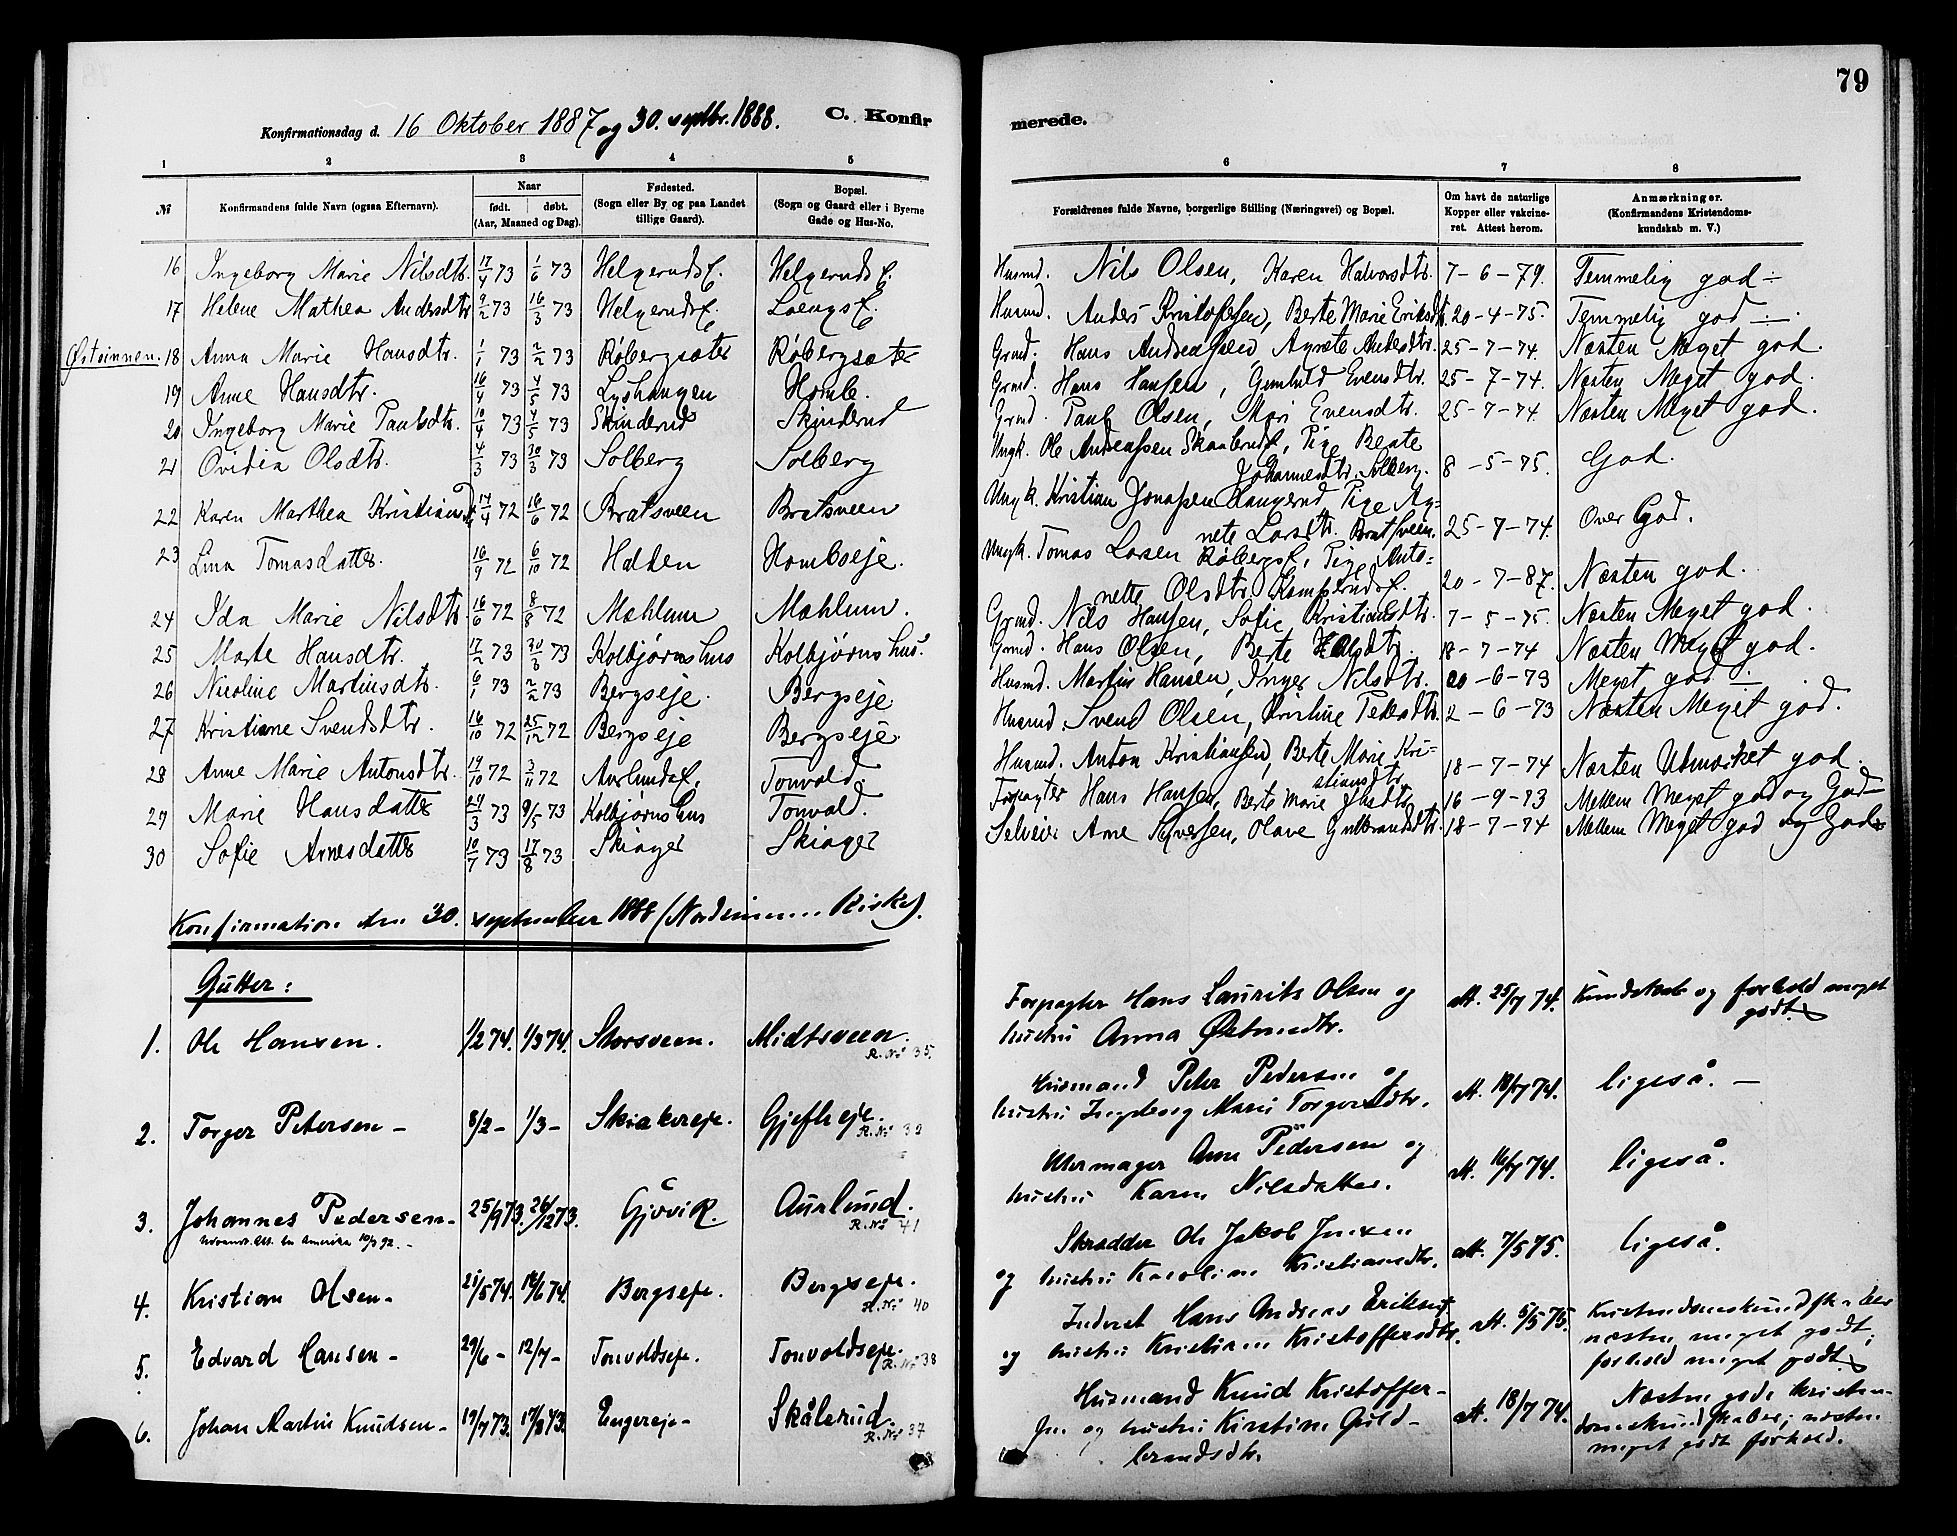 79
Konfirmationsdag d. 16 Oktober 1887 og 30. septbr. 1888. C. Konfir
merede.
1 2 3 4 5
6 7 8
№ Konfirmandens fulde Navn (ogsaa Efternavn). Naar født. døbt. (Aar, Maaned og Dag). Fødested. (Sogn eller By og paa Landet tillige Gaard). Bopæl. (Sogn og Gaard eller i Byerne Gade og Hus-No.
Forældrenes fulde Navne, borgerlige Stilling (Næringsvei) og Bopæl. Om havt de naturlige Kopper eller vakcineret. Attest herom. Anmærkninger. (Konfirmandens Kristendomskundskab m. V.)
16 Ingeborg Marie Nilsdtr. 17/4 73 1/6 73 Helgerudsf. Helgerudsf. Husmd. Nils Olsen, Karen Halvorsdtr. 7-6-79. Temmelig god
17 Helene Mathea Andersdtr 9/2 73 16/3 73 Helgerudsf. Loengsf. Husmd. Anders Kristofersen, Berte Marie Eriksdt. 20-4-75. Temmelig god
Østsinnen. 18 Anna Marie Hansdtr. 1/1 73 2/2 73 Røbergsæter Røbergsæter Grmd. Hans Andreassen, Agnete Andersdtr. 25-7-74. Næsten Meget god.
19 Anne Hansdtr. 16/4 73 4/5 73 Lyshaugen Homle. Grmd. Hans Hansen, Gunhild Evensdtr. 25-7-74. Næsten Meget god.
20 Ingeborg Marie Paulsdtr. 10/4 73 4/5 73 Skinderud Skinderud Grmd. Paul Olsen, Mari Evensdtr. 25-7-74. Næsten Meget god.
21 Ovidia Olsdtr. 4/3 73 30/3 73 Solberg Solberg Ungk. Ole Andreassen Skaalerudf, Pige Beate
Johannesdtr. Solberg. 8-5-75. God.
22 Karen Marthea Kristiansd 17/4 72 16/6 72 Bratsveen Bratsveen Ungk. Kristian Jonassen Haugerud Pige Ag-
nete Larsdtr. Bratsveen. 25-7-74. Over God.
23 Lina Tomasdatter. 16/9 72 6/10 72 Halden Hombseje. Ungk. Tomas Larsen Røbergsf, Pige Anto-
nette Olsdtr. 20-7-87. Næsten god.
24 Ida Marie Nilsdtr. 16/6 72 8/8 72 Mæhlum Mæhlum. Grmd. Nils Hansen, Sofie Kristiansdtr. 7-5-75. Næsten Meget god.
25 Marte Hansdtr. 17/2 73 30/3 73 Kolbjørnshus Kolbjørnshus. Grmd. Hans Olsen, Berte 18-7-74 Næsten Meget god.
26 Nicoline Martinsdtr. 6/1 73 2/2 73 Bergseje. Bergseje Husmd. Martin Hansen, Inger Nilsdtr. 20-6-73 Meget god
27 Kristiane Svendsdtr. 16/10 72 25/12 72 Bergseje Bergseje. Husmd. Svend Olsen, Kristine Pedersdtr. 2-6-73 Næsten Meget god.
28 Anne Marie Antonsdtr. 19/10 72 3/11 72 Aurlundsf. Tonvold. Husmd. Anton Kristiansen, Berte Marie Kri-
stiansdtr. 18-7-74 Næsten Udmærket god.
29 Marie Hansdatter 24/3 73 9/5 73 Kolbjørnshus Tonvold. Forpagter Hans Hansen, Berte Marie Olsdtr. 16-9-73 Mellem Meget god og God
30 Sofie Arnesdatter 10/7 73 17/8 73 Skiager Skiager Selveier Arne Syversen, Olave Gulbrandsdtr. 18-7-74 Mellem Meget god og God
Konfirmation den 30. september 1888 (Nordsinnen Kirke).
Gutter:
1. Ole Hansen. 1/2 74. 1/3 74. Storsveen. Midtsveen. R. No 35. Forpagter Hans Laurits Olsen og
hustru Anna Østmdtr. Att. 25/7 74. Kundskab og forhold meget
godt.
2. Torger Petersen – 8/2 – 1/3 – Skiakereje. Gjefleeje. R. No 39 Husmand Peter Pedersen og
hustru Ingeborg Marie Torgersdtr. Att. 18/7 74. ligeså. –
3. Johannes Pedersen – 25/9 73. 26/12 73. Gjøvik. Aurlund. R. No 41 Urmager Arne Pedersen og
hustru Karen Nilsdatter. Att. 16/7 74. ligeså.
Udvandr. Att. til Amerika 10/3 92. –
4. Kristian Olsen – 21/5 74. 14/6 74. Bergseje. Bergseje. R. No 40 Skrædder Ole Jakob Jensen
og hustru Karoline Kristiansdtr. Att. 7/5 75. ligeså.
5. Edvard Hansen – 29/6 – 12/7 – Tonvoldseje. Tonvoldseje. R. No 38 Inderst Hans Andreas Eriksen
og hustru Kristiane Kristoffersdtr. Att. 5/5 75. Kristendomskundskaber
næsten meget godt;
forhold meget godt.
6. Johan Martin Knudsen – 19/7 73. 17/8 73. Engereje – Skålerud. R. No 37 Husmand Knud Kristoffer-
sen og hustru Kirstine Guld-
brandsdtr. Att. 18/7 74. Næsten gode kristen-
domskundskaber; næsten
meget godt forhold.